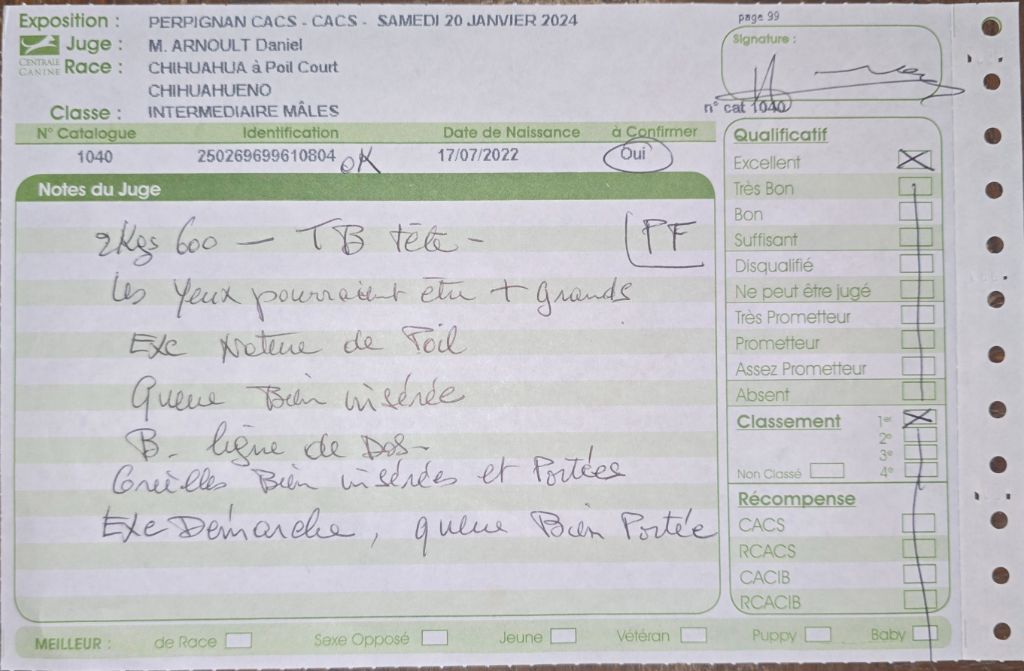 Exposition : PERPIGNAN CACS - CACS - SAMEDI 20 JANVIER 2024
page 99
Juge : M. ARNOULT Daniel
Signature :
CENTRALE CANINE
Race : CHIHUAHUA à Poil Court
CHIHUAHUENO
n° cat 1040
Classe : INTERMEDIAIRE MÂLES
N° Catalogue Identification Date de Naissance à Confirmer
1040 250269699610804 OK 17/07/2022 Oui
Notes du Juge
2Kgs 600 — TB tête -
PF
Les Yeux pourraient être + grands
Exc texture de Poil
Queue Bien insérée
B. ligne de Dos -
Oreilles Bien insérées et Portées
Exc Démarche, queue Bien Portée
Qualificatif
Excellent
Très Bon
Bon
Suffisant
Disqualifié
Ne peut être jugé
Très Prometteur
Prometteur
Assez Prometteur
Absent
Classement 1er
2e
3e
Non Classé 4e
Récompense
CACS
RCACS
CACIB
RCACIB
MEILLEUR : de Race Sexe Opposé Jeune Vétéran Puppy Baby